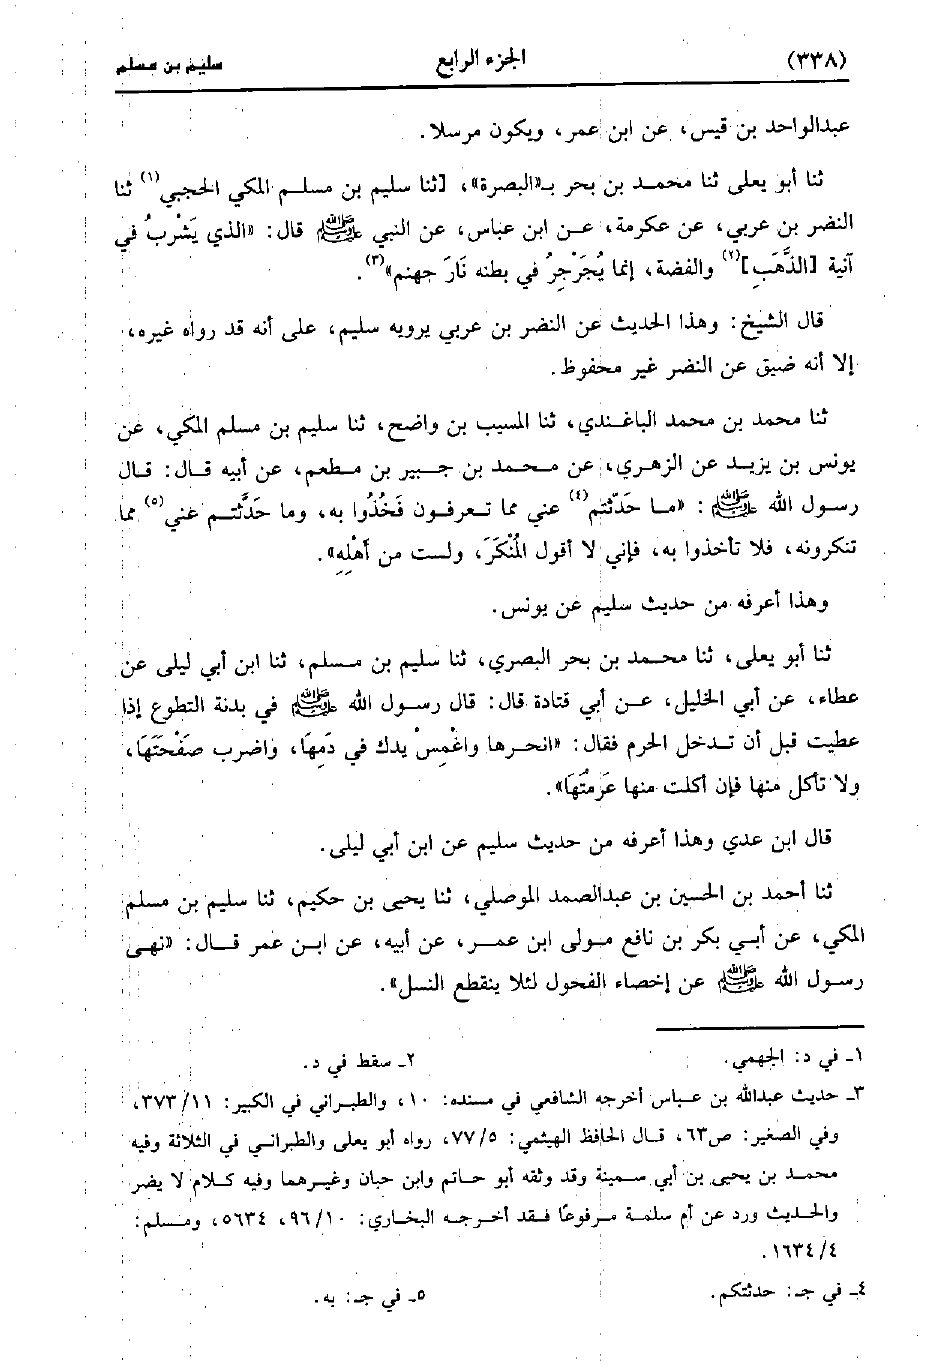 (٣٣٨) الجزء الرابع سليم بن مسلم
عبدالواحد بن قيس، عن ابن عمر، ويكون مرسلا.
ثنا أبو يعلى ثنا محمد بن بحر بـ«البصرة»، [ثنا سليم بن مسلم المكي الحجبي(١) ثنا
النضر بن عربي، عن عكرمة، عن ابن عباس، عن النبي ﷺ قال: «الذي يَشْرَبُ في
آنية [الذَّهَبِ](٢) والفضة، إنما يُجَرْجِرُ في بطنه نَارَ جهنم»(٣).
قال الشيخ: وهذا الحديث عن النضر بن عربي يرويه سليم، على أنه قد رواه غيره،
إلا أنه ضيق عن النضر غير محفوظ.
ثنا محمد بن محمد الباغندي، ثنا المسيب بن واضح، ثنا سليم بن مسلم المكي، عن
يونس بن يزيد عن الزهري، عن محمد بن جبير بن مطعم، عن أبيه قال: قال
رسول الله ﷺ: «ما حَدّثتم(٤) عني مما تعرفون فَخُذُوا به، وما حَدَّثتم عني(٥) مما
تنكرونه، فلا تأخذوا به، فإني لا أقول المُنْكَرَ، ولست من أَهْلِهِ».
وهذا أعرفه من حديث سليم عن يونس.
ثنا أبو يعلى، ثنا محمد بن بحر البصري، ثنا سليم بن مسلم، ثنا ابن أبي ليلى عن
عطاء، عن أبي الخليل، عن أبي قتادة قال: قال رسول الله ﷺ في بدنة التطوع إذا
عطيت قبل أن تدخل الحرم فقال: «انحرها واغْمِسْ يدك في دَمِهَا، واضرب صَفْحَتَهَا،
ولا تأكل منها فإن أكلت منها عَرِمْتُهَا».
قال ابن عدي وهذا أعرفه من حديث سليم عن ابن أبي ليلى.
ثنا أحمد بن الحسين بن عبدالصمد الموصلي، ثنا يحيى بن حكيم، ثنا سليم بن مسلم
المكي، عن أبي بكر بن نافع مولى ابن عمر، عن أبيه، عن ابن عمر قال: «نهى
رسول الله ﷺ عن إخصاء الفحول لئلا ينقطع النسل».
١ـ في د: الجهمي. ٢ـ سقط في د.
٣ـ حديث عبدالله بن عباس أخرجه الشافعي في مسنده: ١٠، والطبراني في الكبير: ٣٧٣/١١،
وفي الصغير: ص٦٣، قال الحافظ الهيثمي: ٧٧/٥، رواه أبو يعلى والطبراني في الثلاثة وفيه
محمد بن يحيى بن أبي سمينة وقد وثقه أبو حاتم وابن حبان وغيرهما وفيه كلام لا يضر
والحديث ورد عن أم سلمة مرفوعًا فقد أخرجه البخاري: ٩٦/١٠، ٥٦٣٤، ومسلم:
١٦٣٤/٤.
٤ـ في جـ: حدثتكم. ٥ـ في جـ: به.